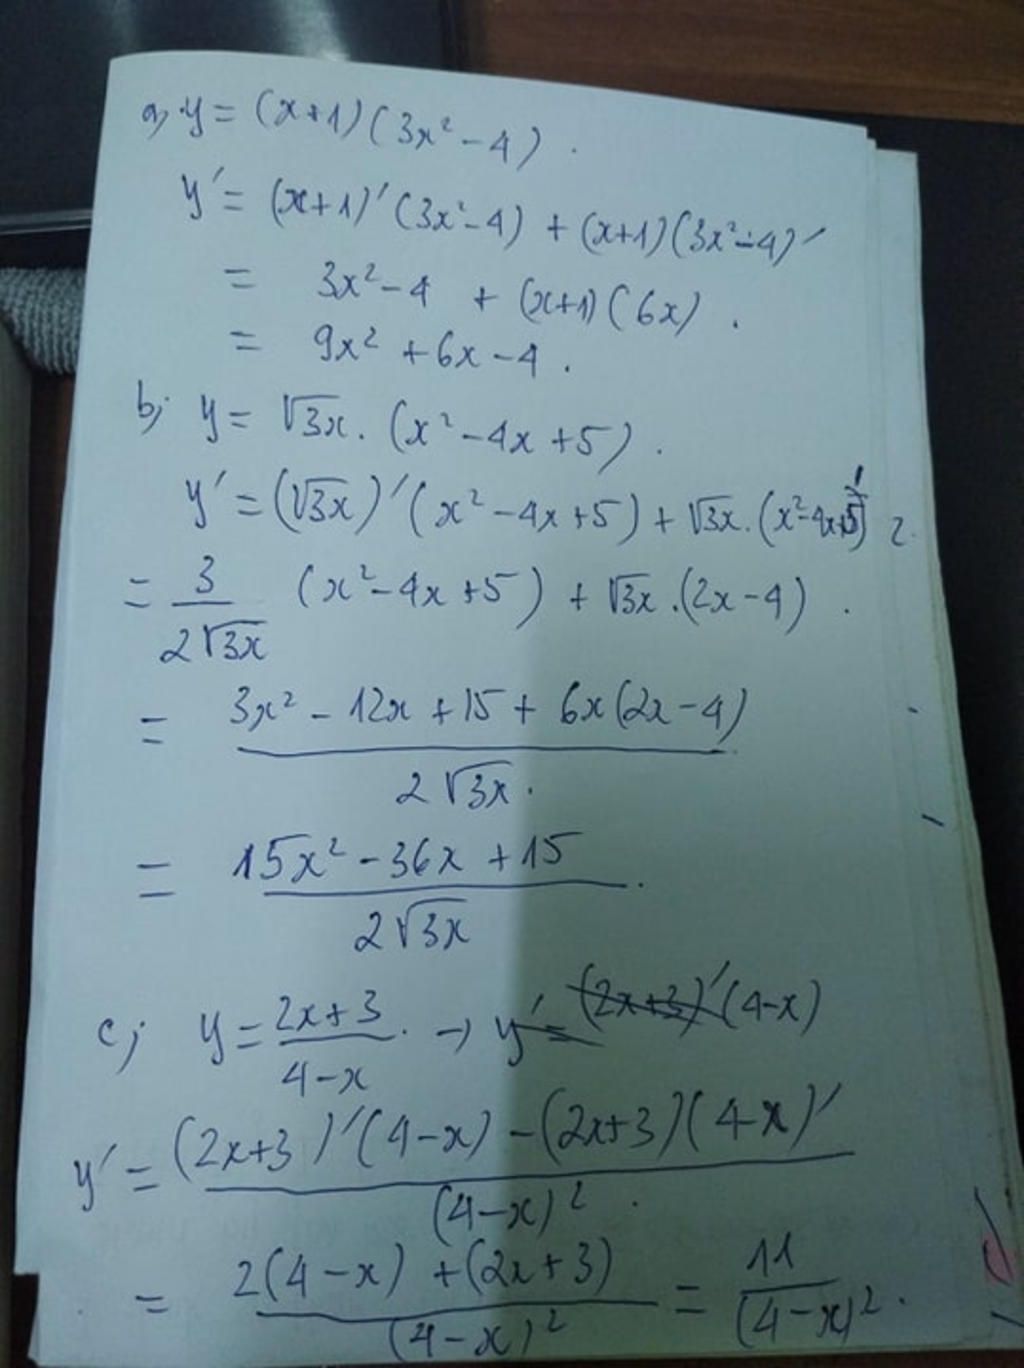 a, y = (x+1)(3x² - 4).
y' = (x+1)'(3x² - 4) + (x+1)(3x² - 4)'
= 3x² - 4 + (x+1)(6x).
= 9x² + 6x - 4.
b; y = √3x. (x² - 4x + 5).
y' = (√3x)'(x² - 4x + 5) + √3x. (x² - 4x + 5)'
= 3/(2√3x) (x² - 4x + 5) + √3x .(2x - 4).
= (3x² - 12x + 15 + 6x(2x - 4))/(2√3x).
= (15x² - 36x + 15)/(2√3x).
c; y = (2x+3)/(4-x). → y' = (2x+3)'(4-x)
y' = ((2x+3)'(4-x) - (2x+3)(4-x)')/(4-x)².
= (2(4-x) + (2x+3))/(4-x)² = 11/(4-x)².